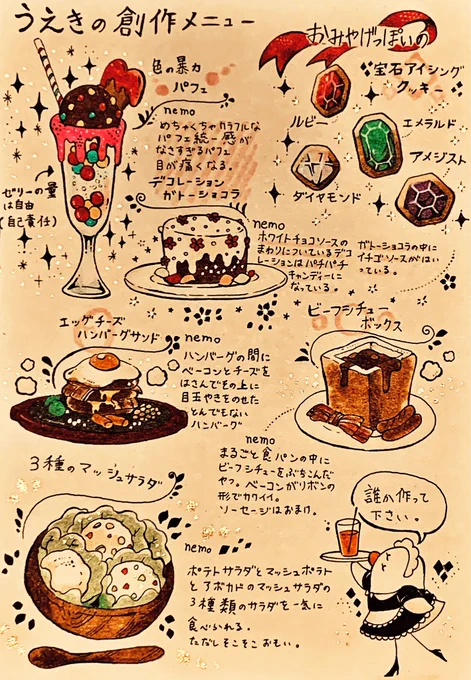 うえきの創作メニュー
色の暴力
パフェ
nemo
めちゃくちゃカラフルな
パフェ統一感が
なさすぎるパフェ
目が痛くなる。
ゼリーの量
は自由
(自己責任)
おみやげっぽいの
宝石アイシング
クッキー
ルビー
エメラルド
ダイヤモンド
アメジスト
デコレーション
ガトーショコラ
nemo
ホワイトチョコソースの
まわりについているデコ
レーションはパチパチ
キャンディーに
なっている。
ガトーショコラの中に
イチゴソースがはい
っている。
エッグチーズ
ハンバーグサンド
nemo
ハンバーグの間に
ベーコンとチーズを
はさんでその上に
目玉やきをのせた
とんでもない
ハンバーグ
ビーフシチュー
ボックス
nemo
まるごと食パンの中に
ビーフシチューをぶちこんだ
やつ。ベーコンがリボンの
形でカワイイ。
ソーセージはおまけ。
3種のマッシュサラダ
nemo
ポテトサラダとマッシュポテト
とアボカドのマッシュサラダの
3種類のサラダを一気に
食べれる。
ただしそこそこおもい。
誰か作って
下さい。